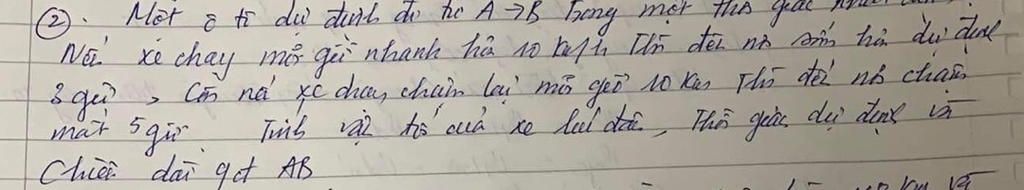 ② . Một ô tô dự định đi từ A → B trong một thời gian
Nếu xe chạy mỗi giờ nhanh hơn 10 km/h thì đến nơi sớm hơn dự định
3 giờ , Còn nếu xe chạy chậm lại mỗi giờ 10 km thì đến nơi chậm
mất 5 giờ . Tính vận tốc của xe lúc đầu , thời gian dự định và
Chiều dài qđ AB